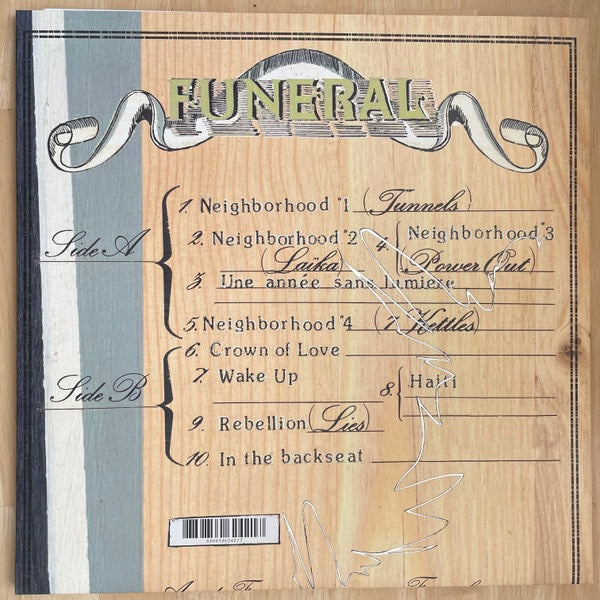 FUNERAL
Side A
1. Neighborhood #1 (Tunnels)
2. Neighborhood #2 (Laïka)
3. Une année sans lumiere
4. Neighborhood #3 (Power Out)
5. Neighborhood #4 (7 Kettles)
Side B
6. Crown of Love
7. Wake Up
8. Haiti
9. Rebellion (Lies)
10. In the backseat